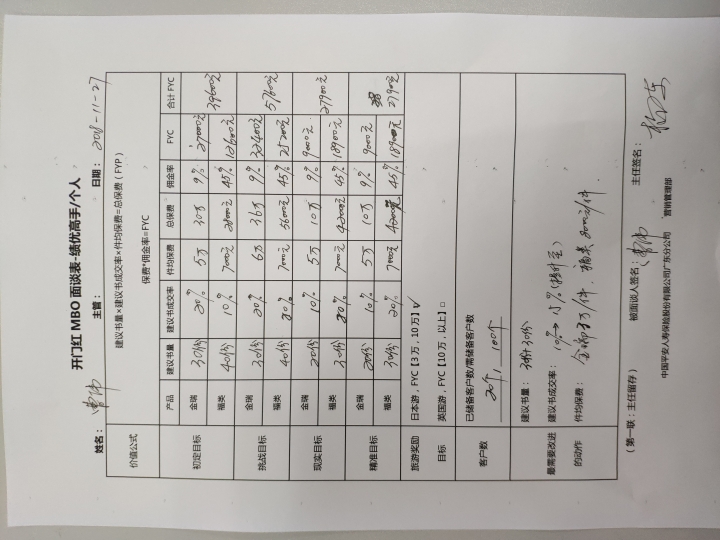 开门红 MBO 面谈表-绩优高手/个人
姓名： 主管： 日期：2018-11-27
价值公式 建议书量×建议书成交率×件均保费=总保费（FYP）
保费*佣金率=FYC
产品 建议书量 建议书成交率 件均保费 总保费 佣金率 FYC 合计 FYC
初定目标 金瑞 30份 20% 5万 30万 9% 27000元 39600元
福类 40份 10% 7000元 28000元 45% 12600元
挑战目标 金瑞 30份 20% 6万 36万 9% 32400元 57600元
福类 40份 20% 7000元 56000元 45% 25200元
现实目标 金瑞 20份 10% 5万 10万 9% 9000元 27900元
福类 30份 20% 7000元 42000元 45% 18900元
精准目标 金瑞 20份 10% 5万 10万 9% 9000元 27900元
福类 30份 20% 7000元 42000元 45% 18900元
旅游奖励 日本游，FYC【3万，10万】✓
目标 英国游，FYC【10万，以上】□
客户数 已储备客户数/需储备客户数
20个，100个
最需要改进 建议书量： 30份
的动作 建议书成交率： 10%→15%(提升至)
件均保费：
（第一联：主任留存） 被面谈人签名： 主任签名：
中国平安人寿保险股份有限公司广东分公司 营销管理部